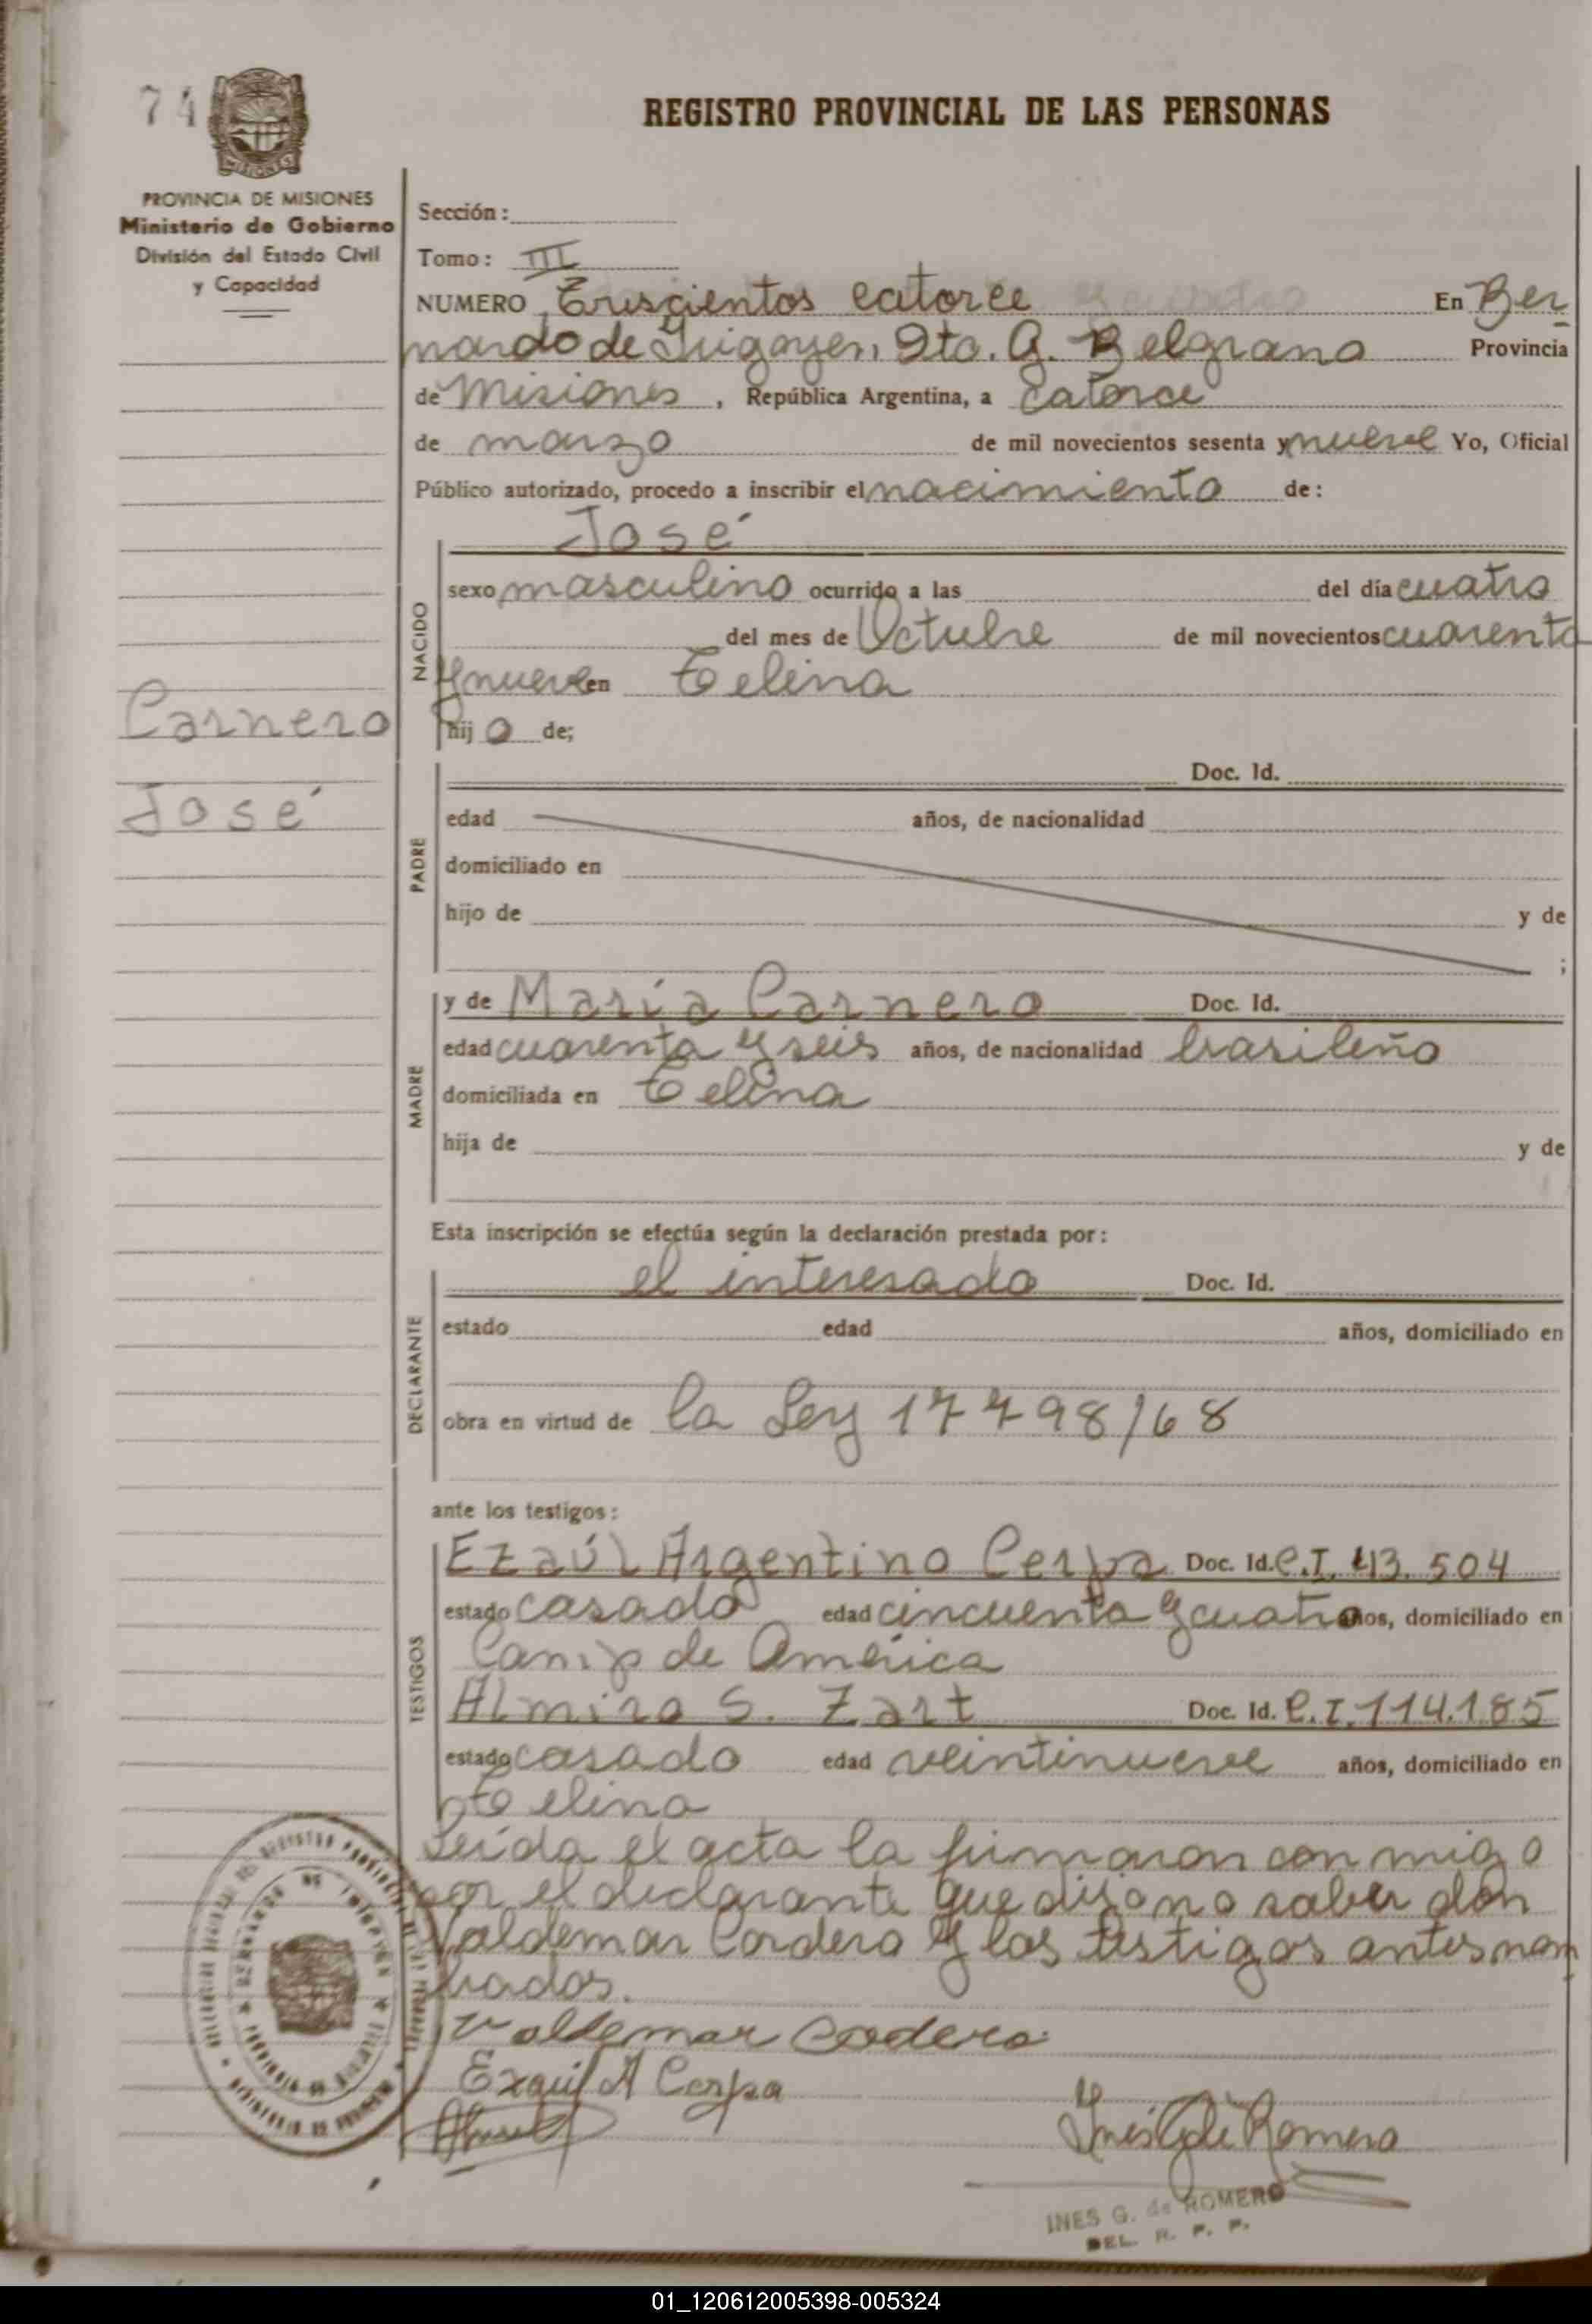 74
REGISTRO PROVINCIAL DE LAS PERSONAS
PROVINCIA DE MISIONES
Ministerio de Gobierno
División del Estado Civil
y Capacidad
Sección:
Tomo: III
NUMERO Trescientos catorce En Ber
nardo de Irigoyen, Dto. G. Belgrano Provincia
de Misiones, República Argentina, a catorce
de marzo de mil novecientos sesenta y nueve Yo, Oficial
Público autorizado, procedo a inscribir el nacimiento de:
José
NACIDO
sexo masculino ocurrido a las del día cuatro
del mes de Octubre de mil novecientos cuarenta
y nueve en Celina
hijo de;
Carnero
José
PADRE
Doc. Id.
edad años, de nacionalidad
domiciliado en
hijo de y de
;
MADRE
y de María Carnero Doc. Id.
edad cuarenta y seis años, de nacionalidad brasileño
domiciliada en Celina
hija de y de
Esta inscripción se efectúa según la declaración prestada por:
DECLARANTE
el interesado Doc. Id.
estado edad años, domiciliado en
obra en virtud de la Ley 17798/68
ante los testigos:
TESTIGOS
Ezaúl Argentino Cerpa Doc. Id. C.I. 413.504
estado casado edad cincuenta y cuatro años, domiciliado en
Camp de América
Almiro S. Zart Doc. Id. C.I. 114.185
estado casado edad veintinueve años, domiciliado en
Celina
Leída el acta la firmaron con migo
por el declarante que dijo no saber don
Valdemar Cordero y los testigos antes nom
brados.
Valdemar Cordero
Ezaúl A Cerpa
Inés G de Romero
INES G. de ROMERO
DEL. R. P. P.
01_120612005398-005324